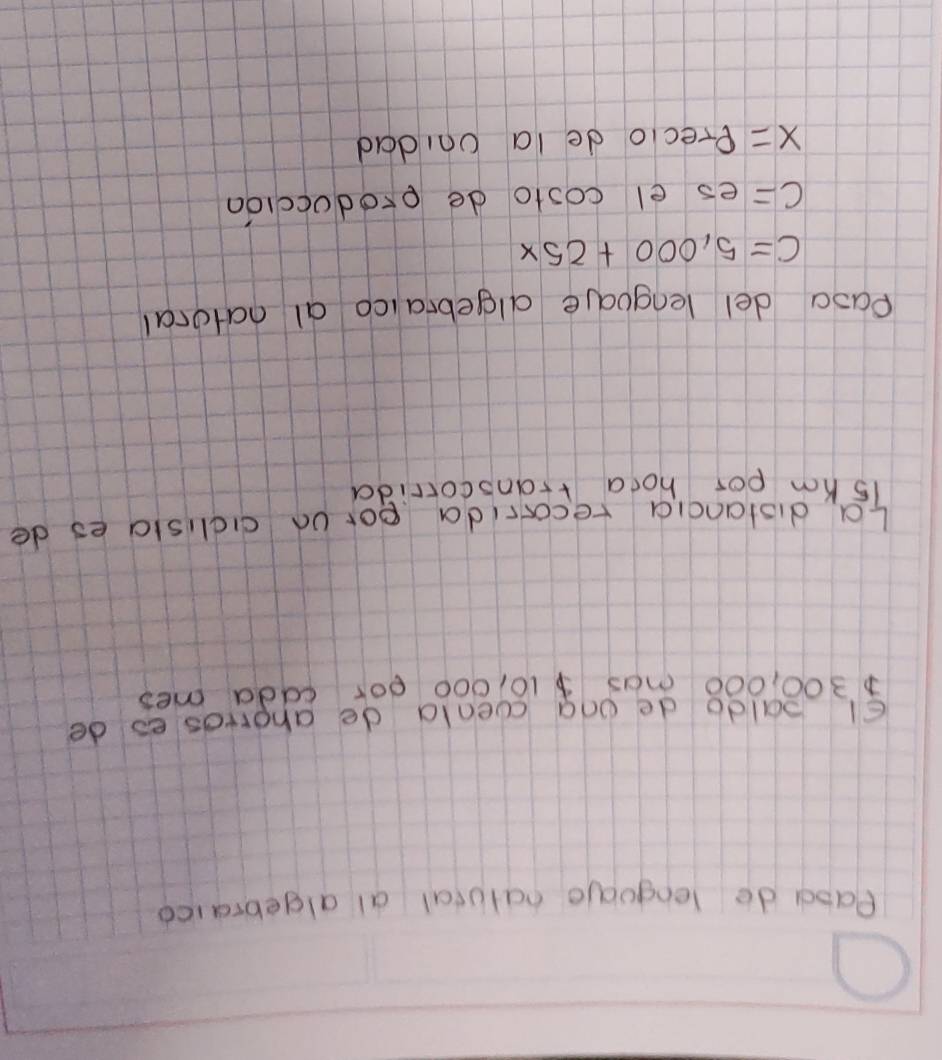 Pasa de lenguaje natural al algebraico
El saldo de una cuenta de ahorros es de
$300,000 mas $10,000 por cada mes
La distancia recorrida por un ciclista es de
15 km por hora transcorrida
Pasa del lenguaje algebraico al natural
C= 5,000 + 25x
C= es el costo de producción
X= Precio de la unidad